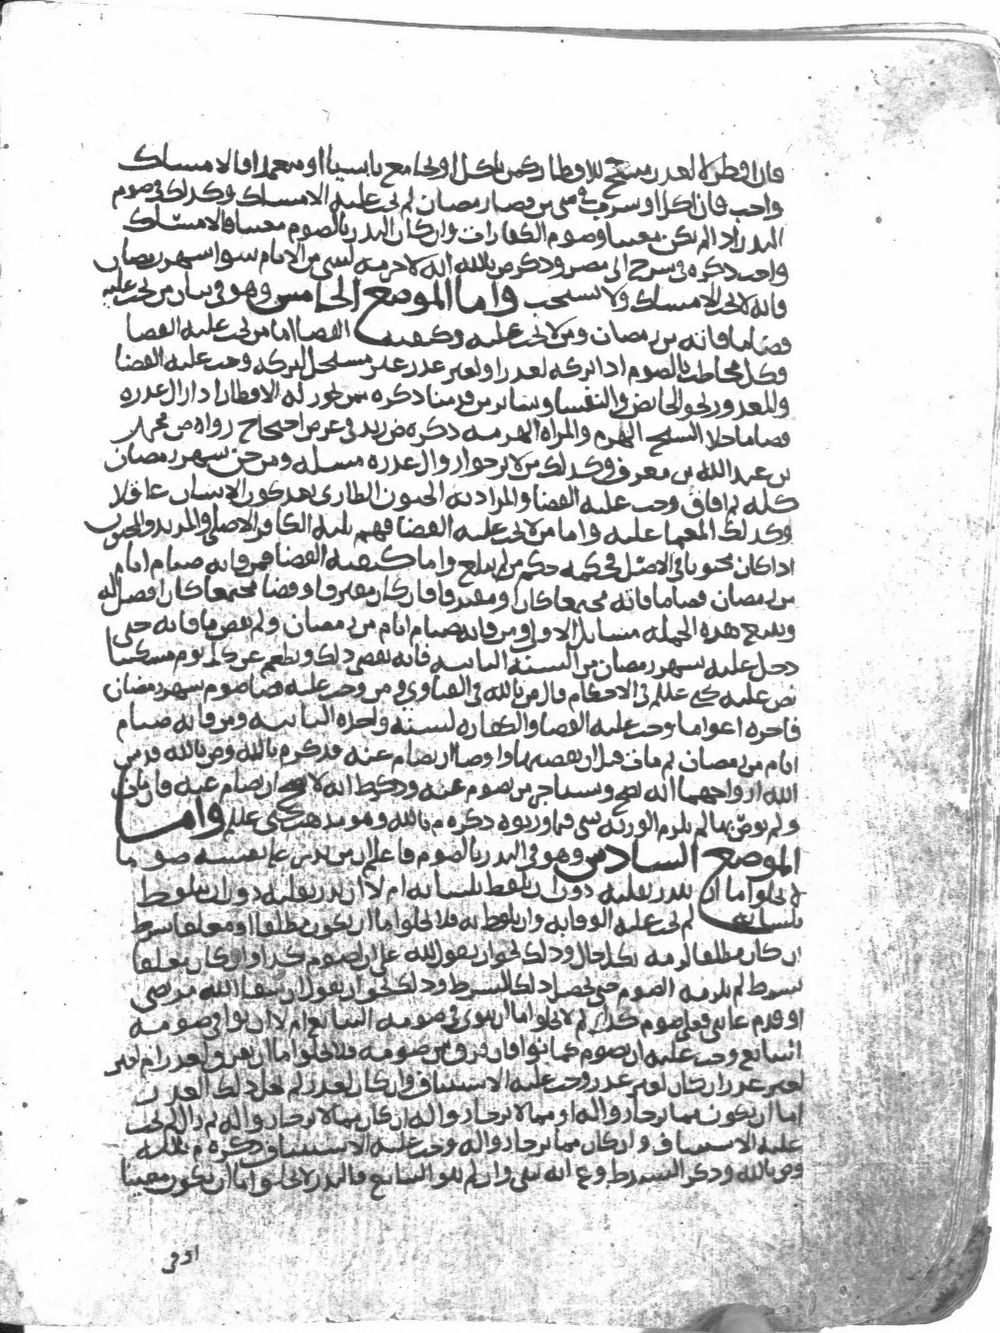 فان افطر لا لعذر يبيح للافطار كمن ياكل او يجامع ناسيا او متعمدا فالامساك
واجب فان اكل او شرب في شي من قضا رمضان لم يجب عليه الامساك وكذلك في صوم
النذر اذا لم يكن معينا وصوم الكفارات وان كان النذر بالصوم معينا فالامساك
واجب ذكره في شرح ابي مضر وذكر ض بالله انه لا حرمة لشي من الايام سوا شهر رمضان
فانه لا يجب الامساك ولا يستحب واما الموضع الخامس وهو في بيان من يجب عليه
قضا ما فاته من رمضان ومن لا يجب عليه وكيفية القضا اما من يجب عليه القضا
فكل مخاطب بالصوم اذا تركه لعذر او لغير عذر غير مستحل لتركه وجب عليه القضا
والمعذور نحو الحائض والنفسا وسائر من قدمنا ذكره ممن يجوز له الافطار اذا زال عذره
قضا ما خلا الشيخ الهرم والمراة الهرمة ذكره ض زيد في عرض احتجاج رواه ض محمد
بن عبد الله بن معرف وكذلك من لا يرجوا زوال عذره مسلة ومن جن شهر رمضان
كله ثم افاق وجب عليه القضا والمراد به الجنون الطارى بعد كون الانسان عاقلا
وكذلك المغما عليه واما من لا يجب عليه القضا فهم ثلثة الكافر الاصلي والمرتد والمجنون
اذا كان مجنونا في الاصل فحكمه حكم من لم يبلغ واما كيفية القضا فمن فاته صيام ايام
من رمضان قضا ما فاته مجتمعا كان او مفترقا فان كان مفترقا وقضا مجتمعا كان افضل له
ويتبع هذه الجملة مسايل الاولى ومن فاته صيام ايام من رمضان ولم يقض ما فاته حتى
دخل عليه شهر رمضان من السنة الثانية فانه يقضي ذلك ويطعم عن كل يوم مسكينا
نص عليه يحيى علم في الاحكام قال ض بالله في الفتاوي ومن وجب عليه قضا صوم شهر رمضان
فاخره اعواما وجب عليه القضا والكفارة لسنة واحدة الثانية ومن فاته صيام
ايام من رمضان ثم مات قبل ان يقضيها واوصا ان يصام عنه فذكر م بالله وص بالله قدس
الله ارواحهما انه يصح ويستاجر من يصوم عنه وذكر ط انه لا يصح ان يصام عنه فان مات
ولم يوص بها لم يلزم الورثة شي فيما ورثوه ذكره م بالله وهو مذهب يحيى علم واما
الموضع السادس وهو في النذر بالصوم فاعلم ان من نذر على نفسه صوما
لم يخلوا اما ان ينذر بقلبه دون ان يلفظ بلسانه ام لا ان نذر بقلبه دون ان يلفظ
بلسانه لم يجب عليه الوفا به وان لفظ به فلا يخلوا اما ان يكون مطلقا او معلقا بشرط
ان كان مطلقا لزمه بكل حال وذلك نحو ان يقول لله علي ان اصوم كذا وان كان معلقا
بشرط لم يلزمه الصوم حتى يحصل ذلك الشرط وذلك نحو ان يقول ان شفا الله مريضي
او قدم غائبي فعلي صوم كذا ثم لا يخلوا اما ان ينوي في صومه التتابع ام لا ان نوا في صومه
التتابع وجب عليه ان يصوم كما نوا فان فرق بين صومه فلا يخلوا اما ان يفرق لعذر ام لغير
لغير عذر ان كان لغير عذر وجب عليه الاستيناف وان كان لعذر لم يخل ذلك العذر
اما ان يكون مما يرجا زواله او مما لا يرجا زواله ان كان مما لا يرجا زواله ثم زال لم يجب
عليه الاستيناف وان كان مما يرجا زواله وجب عليه الاستيناف ذكره م بالله
وص بالله وذكر الشرط وع انه يبني وان لم ينو التتابع فالنذر لا يخلوا اما ان يكون معينا